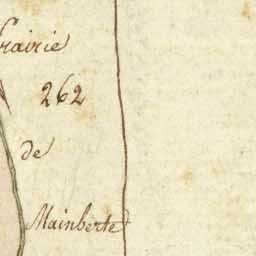 Prairie
262
de
Mainberte